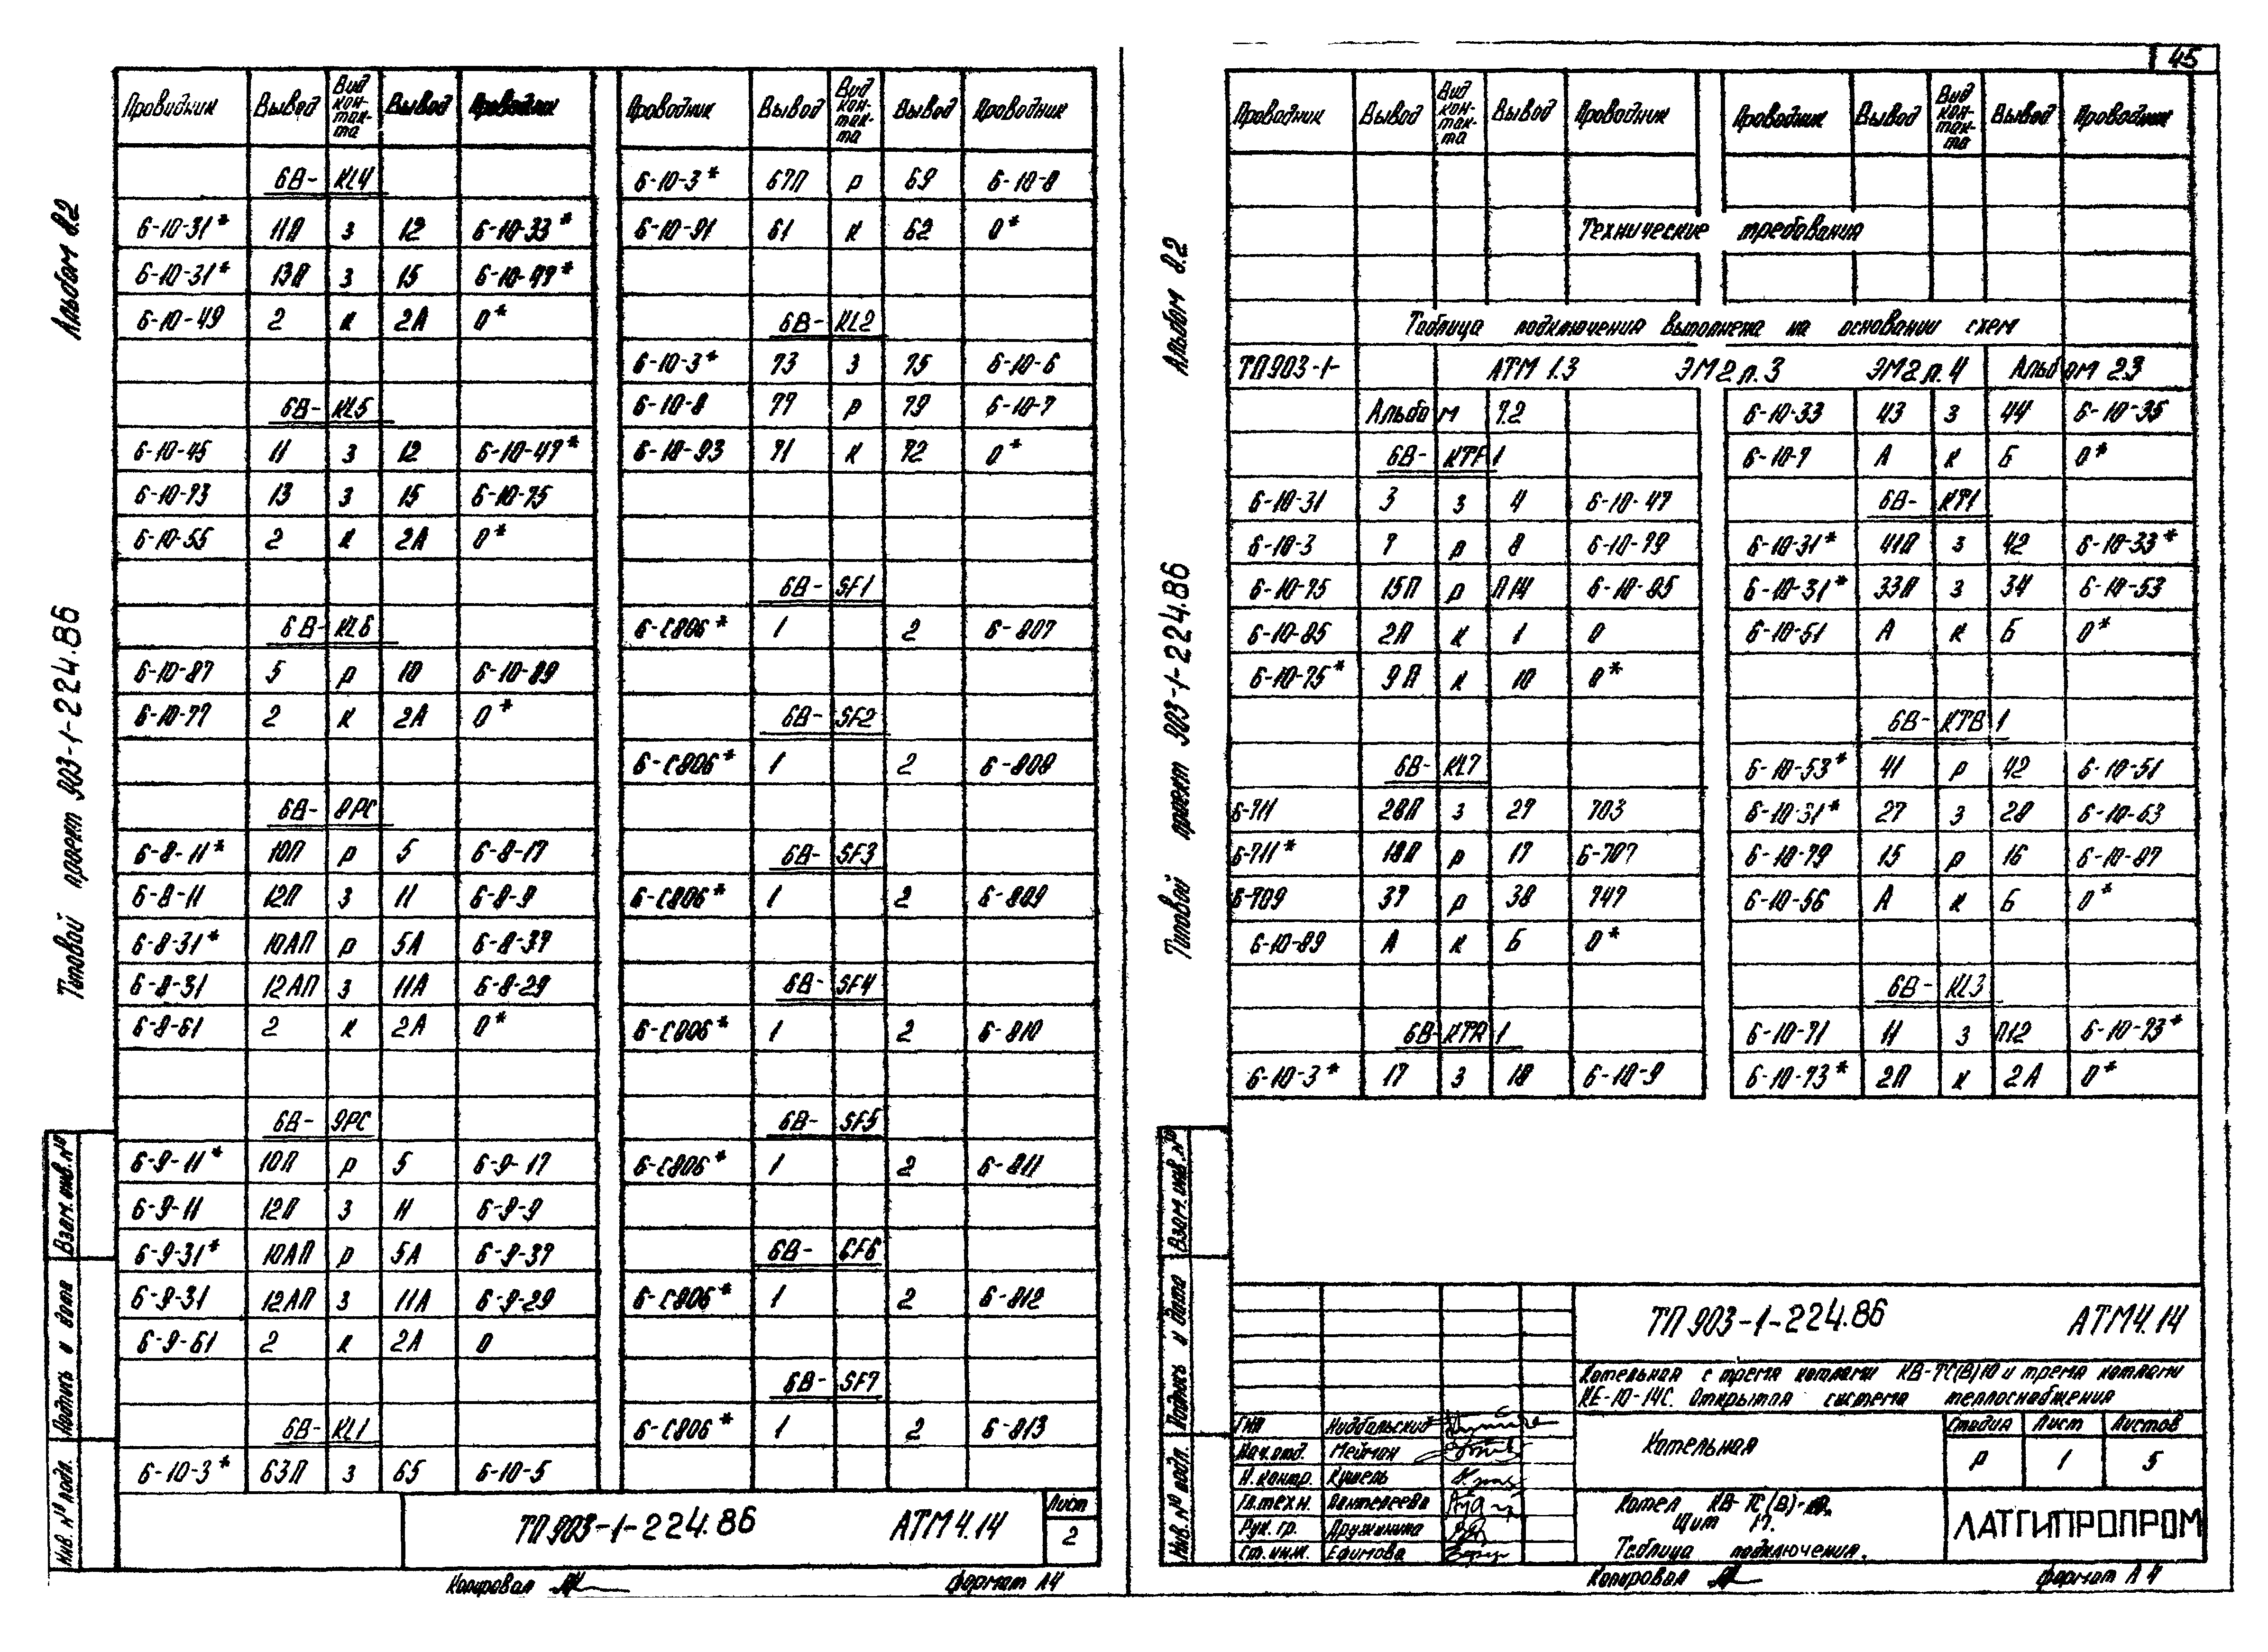 45
Альбом 8.2
Типовой проект 903-1-224.86
Взам. инв. №
Подпись и дата
Инв. № подл.
Проводник Вывод Вид кон-так-та Вывод Проводник
6В- KL4
6-10-31* 11П з 12 6-10-33*
6-10-31* 13П з 15 6-10-47*
6-10-49 2 к 2А 0*
6В- KL5
6-10-45 11 з 12 6-10-47*
6-10-73 13 з 15 6-10-75
6-10-55 2 к 2А 0*
6В- KL6
6-10-87 5 р 10 6-10-89
6-10-77 2 к 2А 0*
6В- 8РС
6-8-11* 10П р 5 6-8-17
6-8-11 12П з 11 6-8-9
6-8-31* 10АП р 5А 6-8-37
6-8-31 12АП з 11А 6-8-29
6-8-61 2 к 2А 0*
6В- 9РС
6-9-11* 10П р 5 6-9-17
6-9-11 12П з 11 6-9-9
6-9-31* 10АП р 5А 6-9-37
6-9-31 12АП з 11А 6-9-29
6-9-61 2 к 2А 0
6В- KL1
6-10-3* 63П з 65 6-10-5
Проводник Вывод Вид кон-так-та Вывод Проводник
6-10-3* 67П р 69 6-10-8
6-10-91 61 к 62 0*
6В- KL2
6-10-3* 73 з 75 6-10-6
6-10-8 77 р 79 6-10-7
6-10-93 71 к 72 0*
6В- SF1
6-С806* 1 2 6-807
6В- SF2
6-С806* 1 2 6-808
6В- SF3
6-С806* 1 2 6-809
6В- SF4
6-С806* 1 2 6-810
6В- SF5
6-С806* 1 2 6-811
6В- SF6
6-С806* 1 2 6-812
6В- SF7
6-С806* 1 2 6-813
ТП 903-1-224.86 АТМ4.14
Лист
2
Копировал
формат А4
Альбом 8.2
Типовой проект 903-1-224.86
Взам. инв. №
Подпись и дата
Инв. № подл.
Проводник Вывод Вид кон-так-та Вывод Проводник
Проводник Вывод Вид кон-так-та Вывод Проводник
Технические требования
Таблица подключения выполнена на основании схем
ТП903-1- АТМ 1.3 ЭМ2л.3 ЭМ2л.4 Альбом 2.3
Альбом 7.2
6В- КТF1
6-10-31 3 з 4 6-10-47
6-10-3 7 р 8 6-10-79
6-10-75 15П р П14 6-10-85
6-10-85 2П к 1 0
6-10-75* 9П к 10 0*
6В- KL7
6-711 28П з 27 703
6-711* 18П р 17 6-707
6-709 37 р 38 747
6-10-89 А к Б 0*
6В- КТR1
6-10-3* 17 з 18 6-10-9
6-10-33 43 з 44 6-10-35
6-10-7 А к Б 0*
6В- КТ1
6-10-31* 41П з 42 6-10-33*
6-10-31* 33П з 34 6-10-53
6-10-51 А к Б 0*
6В- КТВ1
6-10-53* 41 р 42 6-10-51
6-10-31* 27 з 28 6-10-63
6-10-79 15 р 16 6-10-87
6-10-56 А к Б 0*
6В- KL3
6-10-71 11 з П12 6-10-73*
6-10-73* 2П к 2А 0*
ТП 903-1-224.86 АТМ4.14
Котельная с тремя котлами КВ-ТС(В)10 и тремя котлами
КЕ-10-14С. Открытая система теплоснабжения
ГИП Нидбальский
Нач.отд. Мейман
Н. контр. Кушель
Гл.техн. Пантелеева
Рук. гр. Дружинина
Ст. инж. Ефимова
Котельная
Стадия Лист Листов
Р 1 5
Котел КВ-ТС(В)-10.
Щит 17.
Таблица подключения.
ЛАТГИПРОПРОМ
Копировал
формат А4